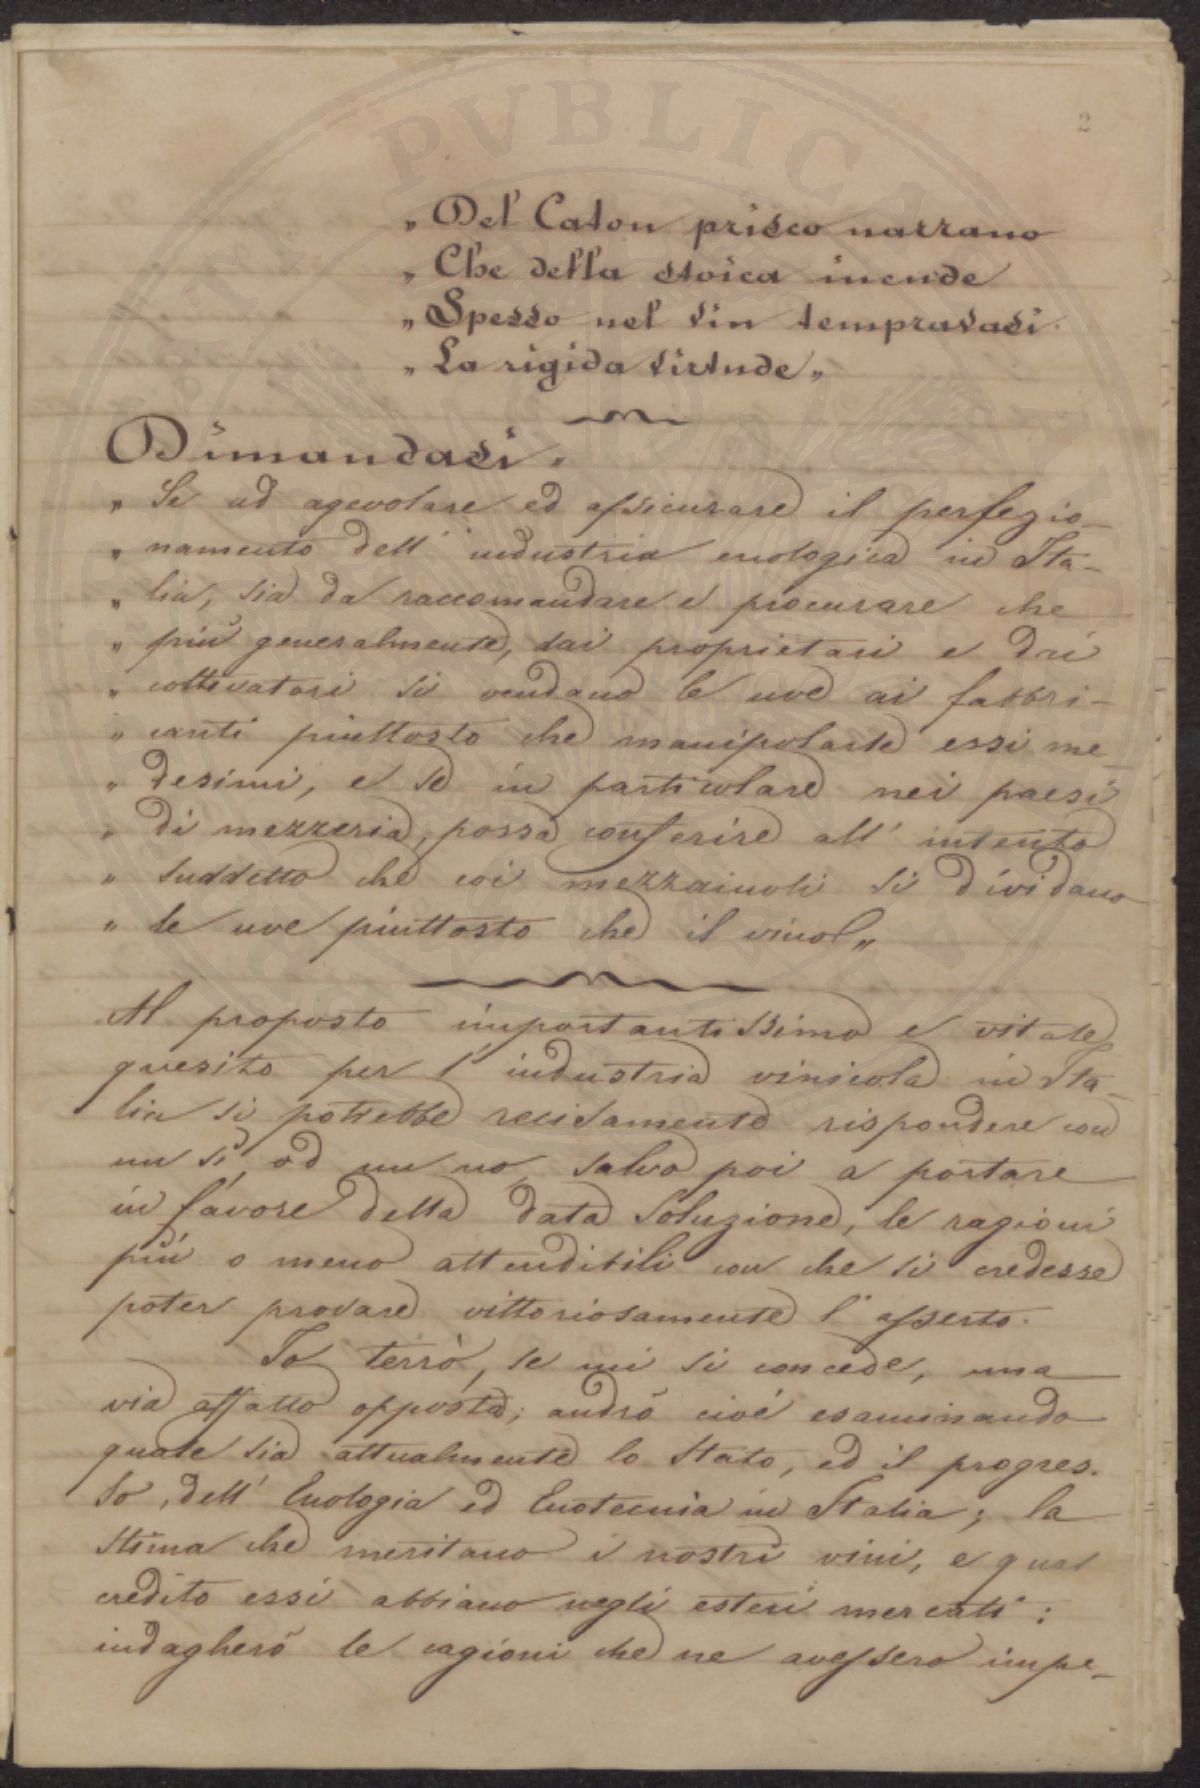 2
„ Del Caton prisco narrano
„ Che della stoica incude
„ Spesso nel vin tempravasi.
„ La rigida virtude „
Dimandasi „
„ Se ad agevolare ed assicurare il perfezio-
„ namento dell' industria enologica in Ita-
„ lia, sia da raccomandare e procurare che
„ più generalmente, dai proprietari e dai
„ coltivatori si vendano le uve ai fabbri-
„ canti piuttosto che manipolarle essi me-
„ desimi, e se in particolare nei paesi
„ di mezzeria, possa conferire all' intento
„ suddetto che coi mezzaiuoli si dividano
„ le uve piuttosto che il vino! „
Al proposto importantissimo e vitale
quesito per l' industria vinicola in Ita-
lia si potrebbe recisamente rispondere con
un sì, od un no, salvo poi a portare
in favore della data soluzione, le ragioni
più o meno attendibili con che si credesse
poter provare vittoriosamente l' asserto.
Io terrò, se mi si concede, una
via affatto opposta; andrò cioè esaminando
quale sia attualmente lo stato, ed il progres.
so, dell' Enologia ed Enotecnia in Italia; la
stima che meritano i nostri vini, e qual
credito essi abbiano negli esteri mercati;
indagherò le cagioni che ne avessero impe-